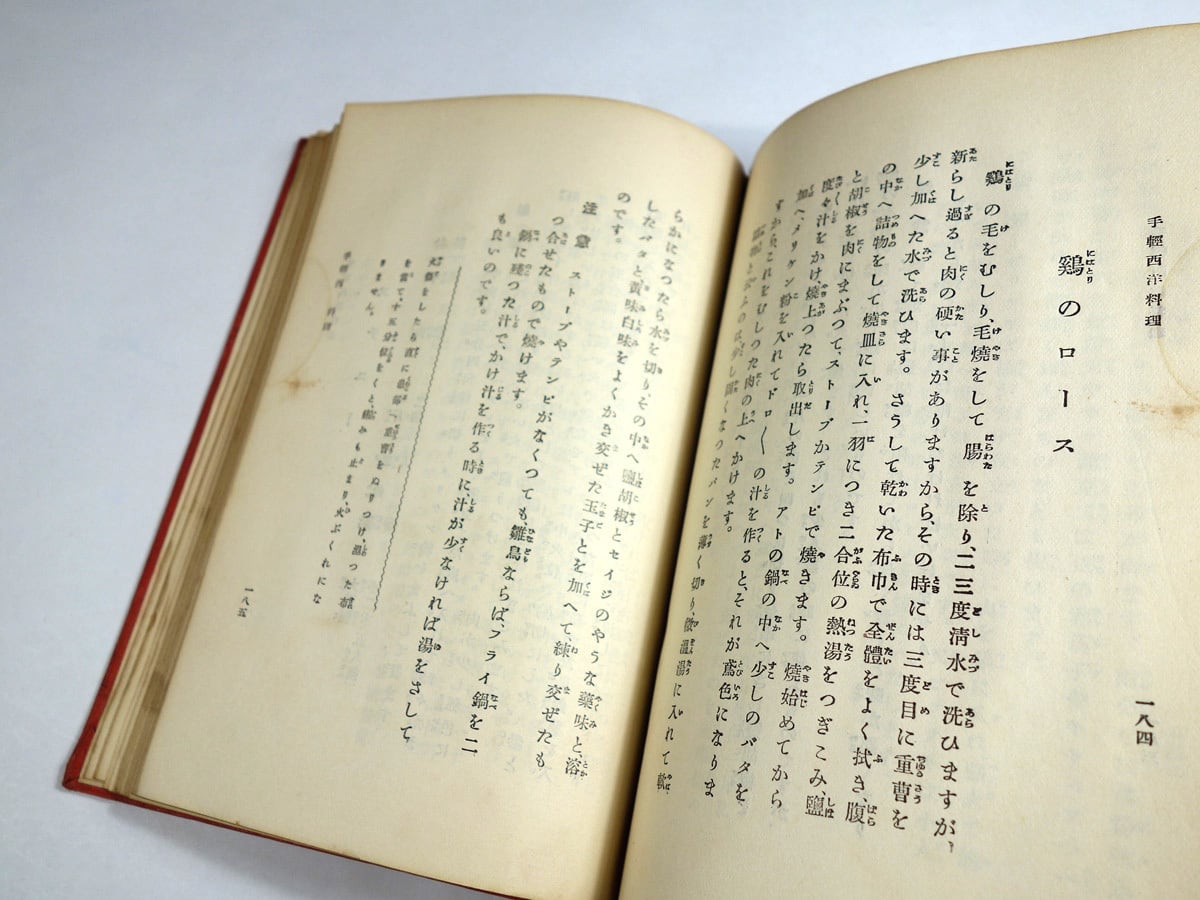 手輕西洋料理
一八四
鷄のロース
鷄の毛をむしり、毛燒をして腸を除り、二三度淸水で洗ひますが、
新らし過ると肉の硬い事がありますから、その時には三度目に重曹を
少し加へた水で洗ひます。さうして乾いた布巾で全體をよく拭き、腹
の中へ詰物をして燒皿に入れ、一羽につき二合位の熱湯をつぎこみ、鹽
と胡椒を肉にまぶつて、ストーブかテンピで燒きます。燒始めてから
度々汁をかけ燒上つたら取出します。アトの鍋の中へ少しのバタを
加へ、メリケン粉を入れてドロ〳〵の汁を作ると、それが鳶色になりま
すから、これをむしつた肉の上へかけます。
詰物と云ふのは、少し固くなつたパンを薄く切り、微溫湯に入れて軟
らかになつたら水を切り、その中へ鹽胡椒とセイジのやうな藥味と、溶
したバタと黃味白味をよくかき交ぜた玉子とを加へて、練り交ぜたも
のです。
注意 ストーブやテンピがなくつても、雛鳥ならば、フライ鍋を二
つ合せたもので燒けます。
鍋に殘つた汁で、かけ汁を作る時に、汁が少なければ湯をさして
も良いのです。
火傷をしたら直に
重曹をぬりつけ、濕つた布
を當て、十五分位をくと、痛みも止まり、火ぶくれにな
りません。
手輕西 料理
一八五